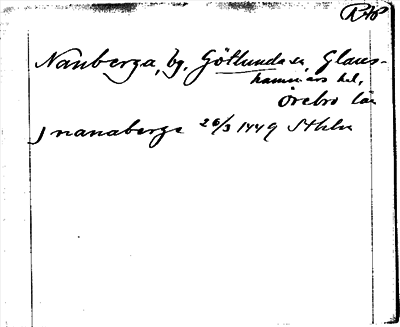 Nanberga, by, Götlunda sn, Glans-
hammars hd,
Örebro län
J nanaberge 26/3 1449 Sthlm